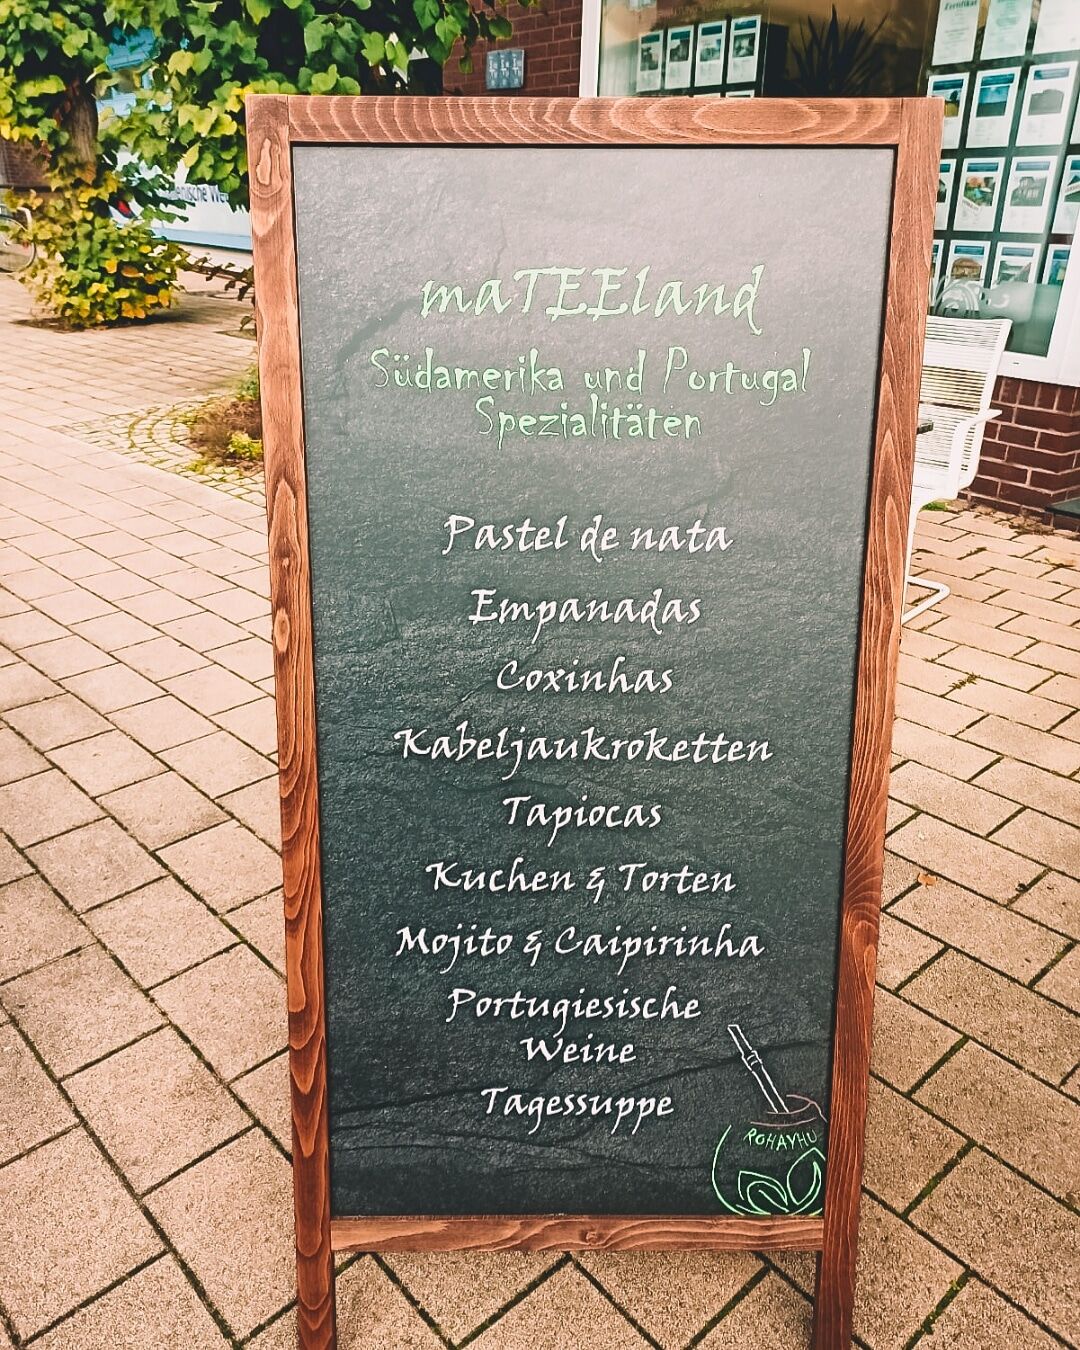 Zertifikat
enische We
maTEEland
Südamerika und Portugal
Spezialitäten
Pastel de nata
Empanadas
Coxinhas
Kabeljaukroketten
Tapiocas
Kuchen & Torten
Mojito & Caipirinha
Portugiesische
Weine
Tagessuppe
ROHAYHU